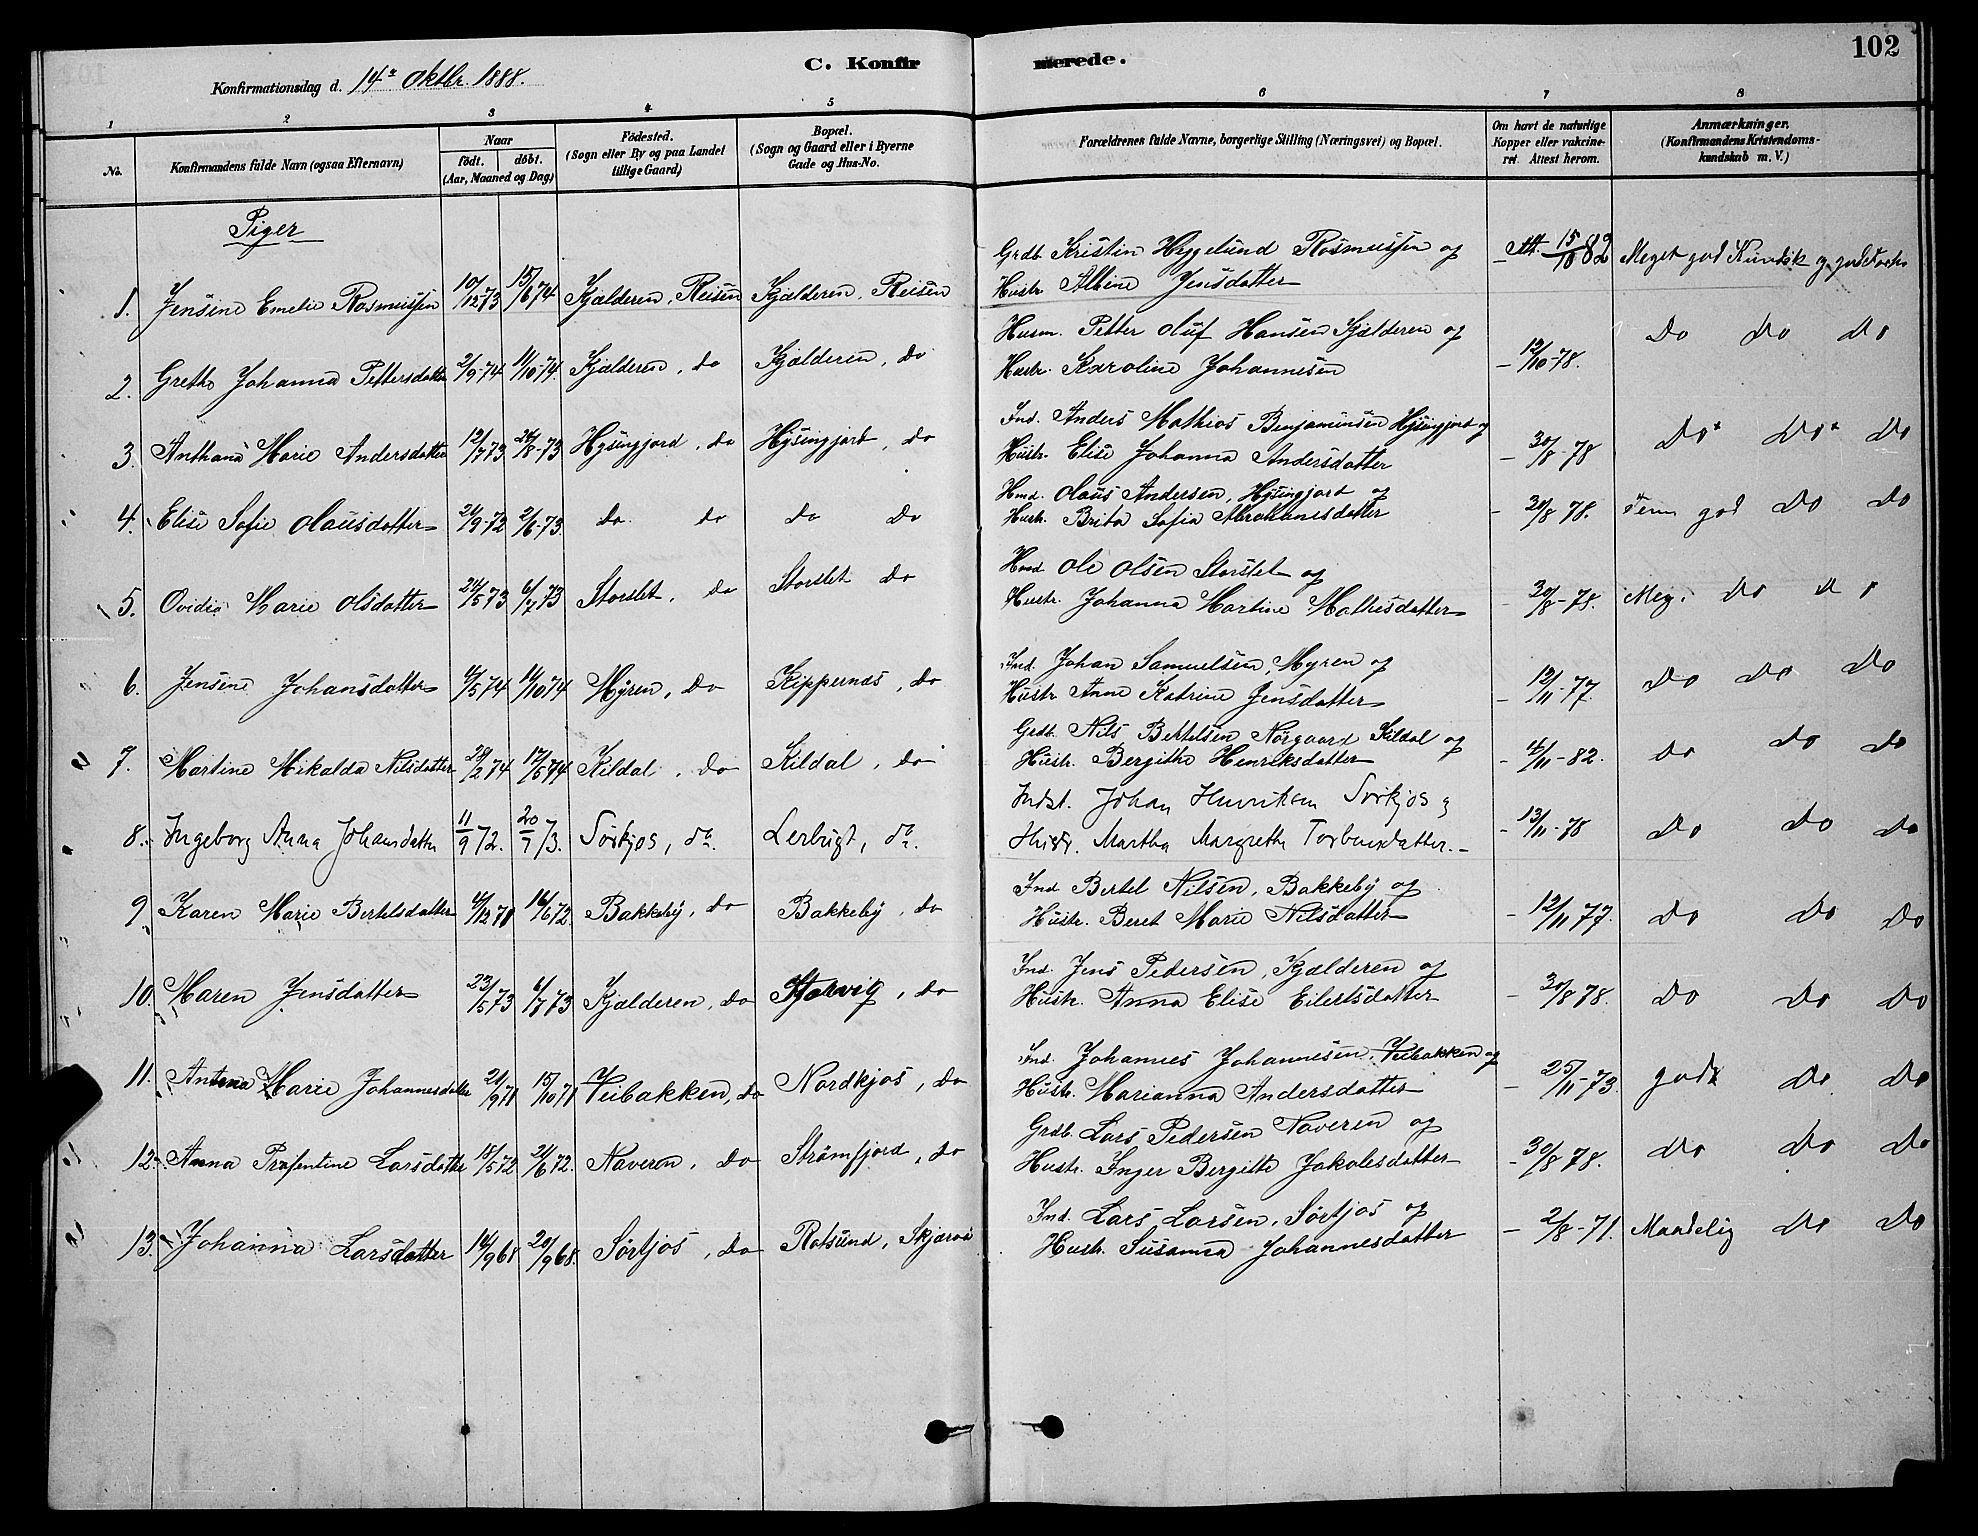 C. Konfirmerede.
102
Konfirmationsdag d. 14de Oktbr. 1888.
1 2 3 4 5 6 7 8
No.
Konfirmandens fulde Navn (ogsaa Efternavn)
Naar
født. døbt.
(Aar, Maaned og Dag)
Fødested.
(Sogn eller By og paa Landet
tillige Gaard)
Bopæl.
(Sogn og Gaard eller i Byerne
Gade og Hus-No.
Forældrenes fulde Navne, borgerlige Stilling (Næringsvei) og Bopæl.
Om havt de naturlige
Kopper eller vakcine-
ret. Attest herom.
Anmærkninger.
(Konfirmandens Kristendoms-
kundskab m. V.)
Piger
1. Jensine Emelie Rasmussen 10/12 73 15/6 74 Kjælderen, Reisen Kjælderen, Reisen
Grdb. Kristin Hygelund Rasmussen og
Hustr. Albine Jensdatter
Att. 15/10 82 Meget god Kundsk og god
2. Grethe Johanna Pettersdatter 2/9-74 11/10-74. Kjælderen, do Kjælderen, do
Husm. Petter Oluf Hansen Kjælderen og
Hustr. Karoline Johannesen
- 12/10-78. Do Do Do
3. Anthana Marie Andersdatter 12/7 73 24/8-73 Hysingjord, do Hysingjord, do
Ind. Anders Mathias Benjaminsen Hysingjord og
Hustr. Elise Johanna Andersdatter
- 30/8-78 Do Do Do
4. Elise Sofie Olausdatter 24/9-72 2/6-73. do do do do
Hmd. Olaus Andersen, Hysingjord og
Hustr. Brita Sofia Abrahamsdatter
- 30/8 78. god Do Do
5. Ovidia Marie Olsdatter 24/5 73 6/7 73 Storslet, do Storslet do
Hmd. Ole Olsen Storslet og
Hustr. Johanna Martine Mathisdatter
- 30/8-78. Meg. Do
6. Jensine Johansdatter 4/5 74 11/10 74 Myren, do Kippernæs, do
Ind. Johan Samuelsen, Myren og
Hustr. Anne Katrine Jensdatter
- 12/11-77. Do Do Do
7. Martine Mikalda Nilsdatter 28/2 74 17/5 74 Kildal, do Kildal, do
Grdb. Nils Bertelsen Norgaard Kildal og
Hustr. Bergithe Henriksdatter
- 16/11-82. Do Do Do
8. Ingeborg Anna Johansdatter 11/9 72. 20/7 73. Sørkjos, do. Lerbugt, do.
Indst. Johan Henriksen Sørkjos og
Hustr. Martha Margrethe Torbensdatter.-
- 13/11-78 Do Do Do
9 Karen Marie Bertelsdatter 4/12 71 16/6 72. Bakkeby, do Bakkeby, do
Ind. Bertel Nilsen, Bakkeby og
Hustr. Beret Marie Nilsdatter
- 12/11 77. Do Do Do
10. Maren Jensdatter 23/5 73 6/7 73 Kjælderen, do Storvig, do
Ind. Jens Pedersen, Kjælderen og
Hustr. Anna Elise Eilertsdatter
- 30/8 78. Do Do Do
11. Antona Marie Johannesdatter 21/9 71 15/10 71 Veibakken, do Nordkjos, do
Ind. Johannes Johannesen, Veibakken og
Hustr. Marianna Andersdatter
- 25/11-73. god Do Do
12. Anna Præsentine Larsdatter 15/5 72 21/6 72. Naveren, do Strømfjord, do
Grdb. Lars Pedersen Naveren og
Hustr. Inger Bergitte Jakobsdatter
- 30/8 78. Do Do Do
13. Johanna Larsdatter 14/9 68 20/9 68. Sørkjos, do Rotsund, Skjærvø
Ind. Lars Larsen, Sørkjos og
Hustr. Susanna Johannesdatter
- 2/8-71. Maadelig Do Do